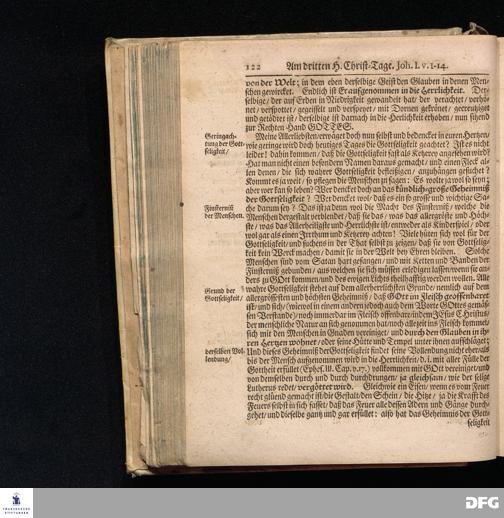 122 Am dritten H. Christ-Tage. Joh. I. v. 1-14.
von der Welt; in dem eben derselbige Geist den Glauben in denen Men-
schen gewircket. Endlich ist Er aufgenommen in die Herrlichkeit. Der-
selbige/ der auf Erden in Niedrigkeit gewandelt hat/ der verachtet/ verhö-
net/ verspottet/ gegeisselt und verspeyet/ mit Dornen gekrönet/ gecreutziget
und getödtet ist/ derselbige ist darnach in die Herrlichkeit erhoben/ nun sitzend
zur Rechten-Hand GOTTES.
Geringach-
tung der Gott-
seligkeit/
Meine Allerliebsten/ erwäget doch nun selbst und bedencket in euren Hertzen/
wie geringe wird doch heutiges Tages die Gottseligkeit geachtet? Ist es nicht
leider! dahin kommen/ daß die Gottseligkeit fast als Ketzerey angesehen wird?
Hat man nicht einen besondern Namen daraus gemacht/ und einen Fleck al-
len denen/ die sich wahrer Gottseligkeit befleißigen/ anzuhängen gesuchet?
Kommt es ja weit/ so pflegen die Menschen zu sagen: Es wolte ja wol so seyn;
aber wer kan so leben? Wer dencket doch an das kündlich-große Geheimniß
der Gottseligkeit? Wer dencket wol/ daß es ein so grosse und wichtige Sa-
Finsterniß
der Menschen.
che darum sey? Das ist ja denn wol die Macht der Finsterniß/ welche die
Menschen dergestalt verblendet/ daß sie das/ was das allergröste und Höch-
ste/ was das Allerheiligste und Herrlichste ist/ entweder als Kinderspiel/ oder
wol gar als einen Irrthum und Ketzerey achten! Viele hüten sich wol für der
Gottseligkeit/ und suchens in der That selbst zu zeigen/ daß sie von Gottselig-
keit kein Werck machen/ damit sie in der Welt bey Ehren bleiben. Solche
Menschen sind vom Satan hart gefangen/ und mit Ketten und Banden der
Finsterniß gebunden/ aus welchen sie sich müssen erledigen lassen/ wenn sie an-
ders zu GOtt kommen/ und des ewigen Lichts theilhafftig werden wollen. Alle
Grund der
Gottseligkeit/
wahre Gottseligkeit stehet auf dem allerherrlichsten Grunde/ nemlich auf dem
allergrössesten und höchsten Geheimniß/ daß GOtt im Fleisch geoffenbaret
ist/ und sich/ (wiewol in einem andern jedoch auch dem Worte Gottes gemäs-
sen Verstande) noch immerdar im Fleisch offenbare/ indem JEsus Christus/
der menschliche Natur an sich genommen hat/ noch allezeit ins Fleisch kommt/
sich mit den Menschen in Gnaden vereiniget/ und durch den Glauben in ih-
ren Hertzen wohnet/ oder seine Hütte und Tempel unter ihnen aufschläget;
derselben Vol-
lendung/
Und dieses Geheimniß der Gottseligkeit findet seine Vollendung nicht eher/ als
bis der Mensch aufgenommen wird in die Herrlichkeit/ d. i. mit aller Fülle der
Gottheit erfüllet (Ephes. III. Cap. v. 17.) vollkommen mit GOtt vereiniget/ und
von demselben durch und durch durchdrungen/ ja gleichsam/ wie der selige
Lutherus redet/ vergöttert wird. Gleichwie ein Eisen/ wenn es vom Feuer
recht glüend gemacht ist/ die Gestalt/ den Schein/ die Hitze/ ja die Krafft des
Feuers selbst in sich fasset/ daß das Feuer alle dessen Adern und Gänge durch-
gehet/ und dieselbe gantz und gar erfüllet: also hat das Geheimniß der Gott-
seligkeit
FRANCKESCHE
STIFTUNGEN
DFG